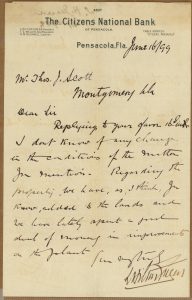 The Citizens National Bank
OF PENSACOLA
Pensacola, Fla. June 16/99
Mr. Thos. J. Scott
Montgomery Ala
Dear Sir
Replying to your favor 15 inst
I dont know of any change
in the conditions of the matter
you mention. Regarding the
property we have, as I think you
know, added to the lands and
we have lately spent a good
deal of money in improvements
on the plant.
Yours truly